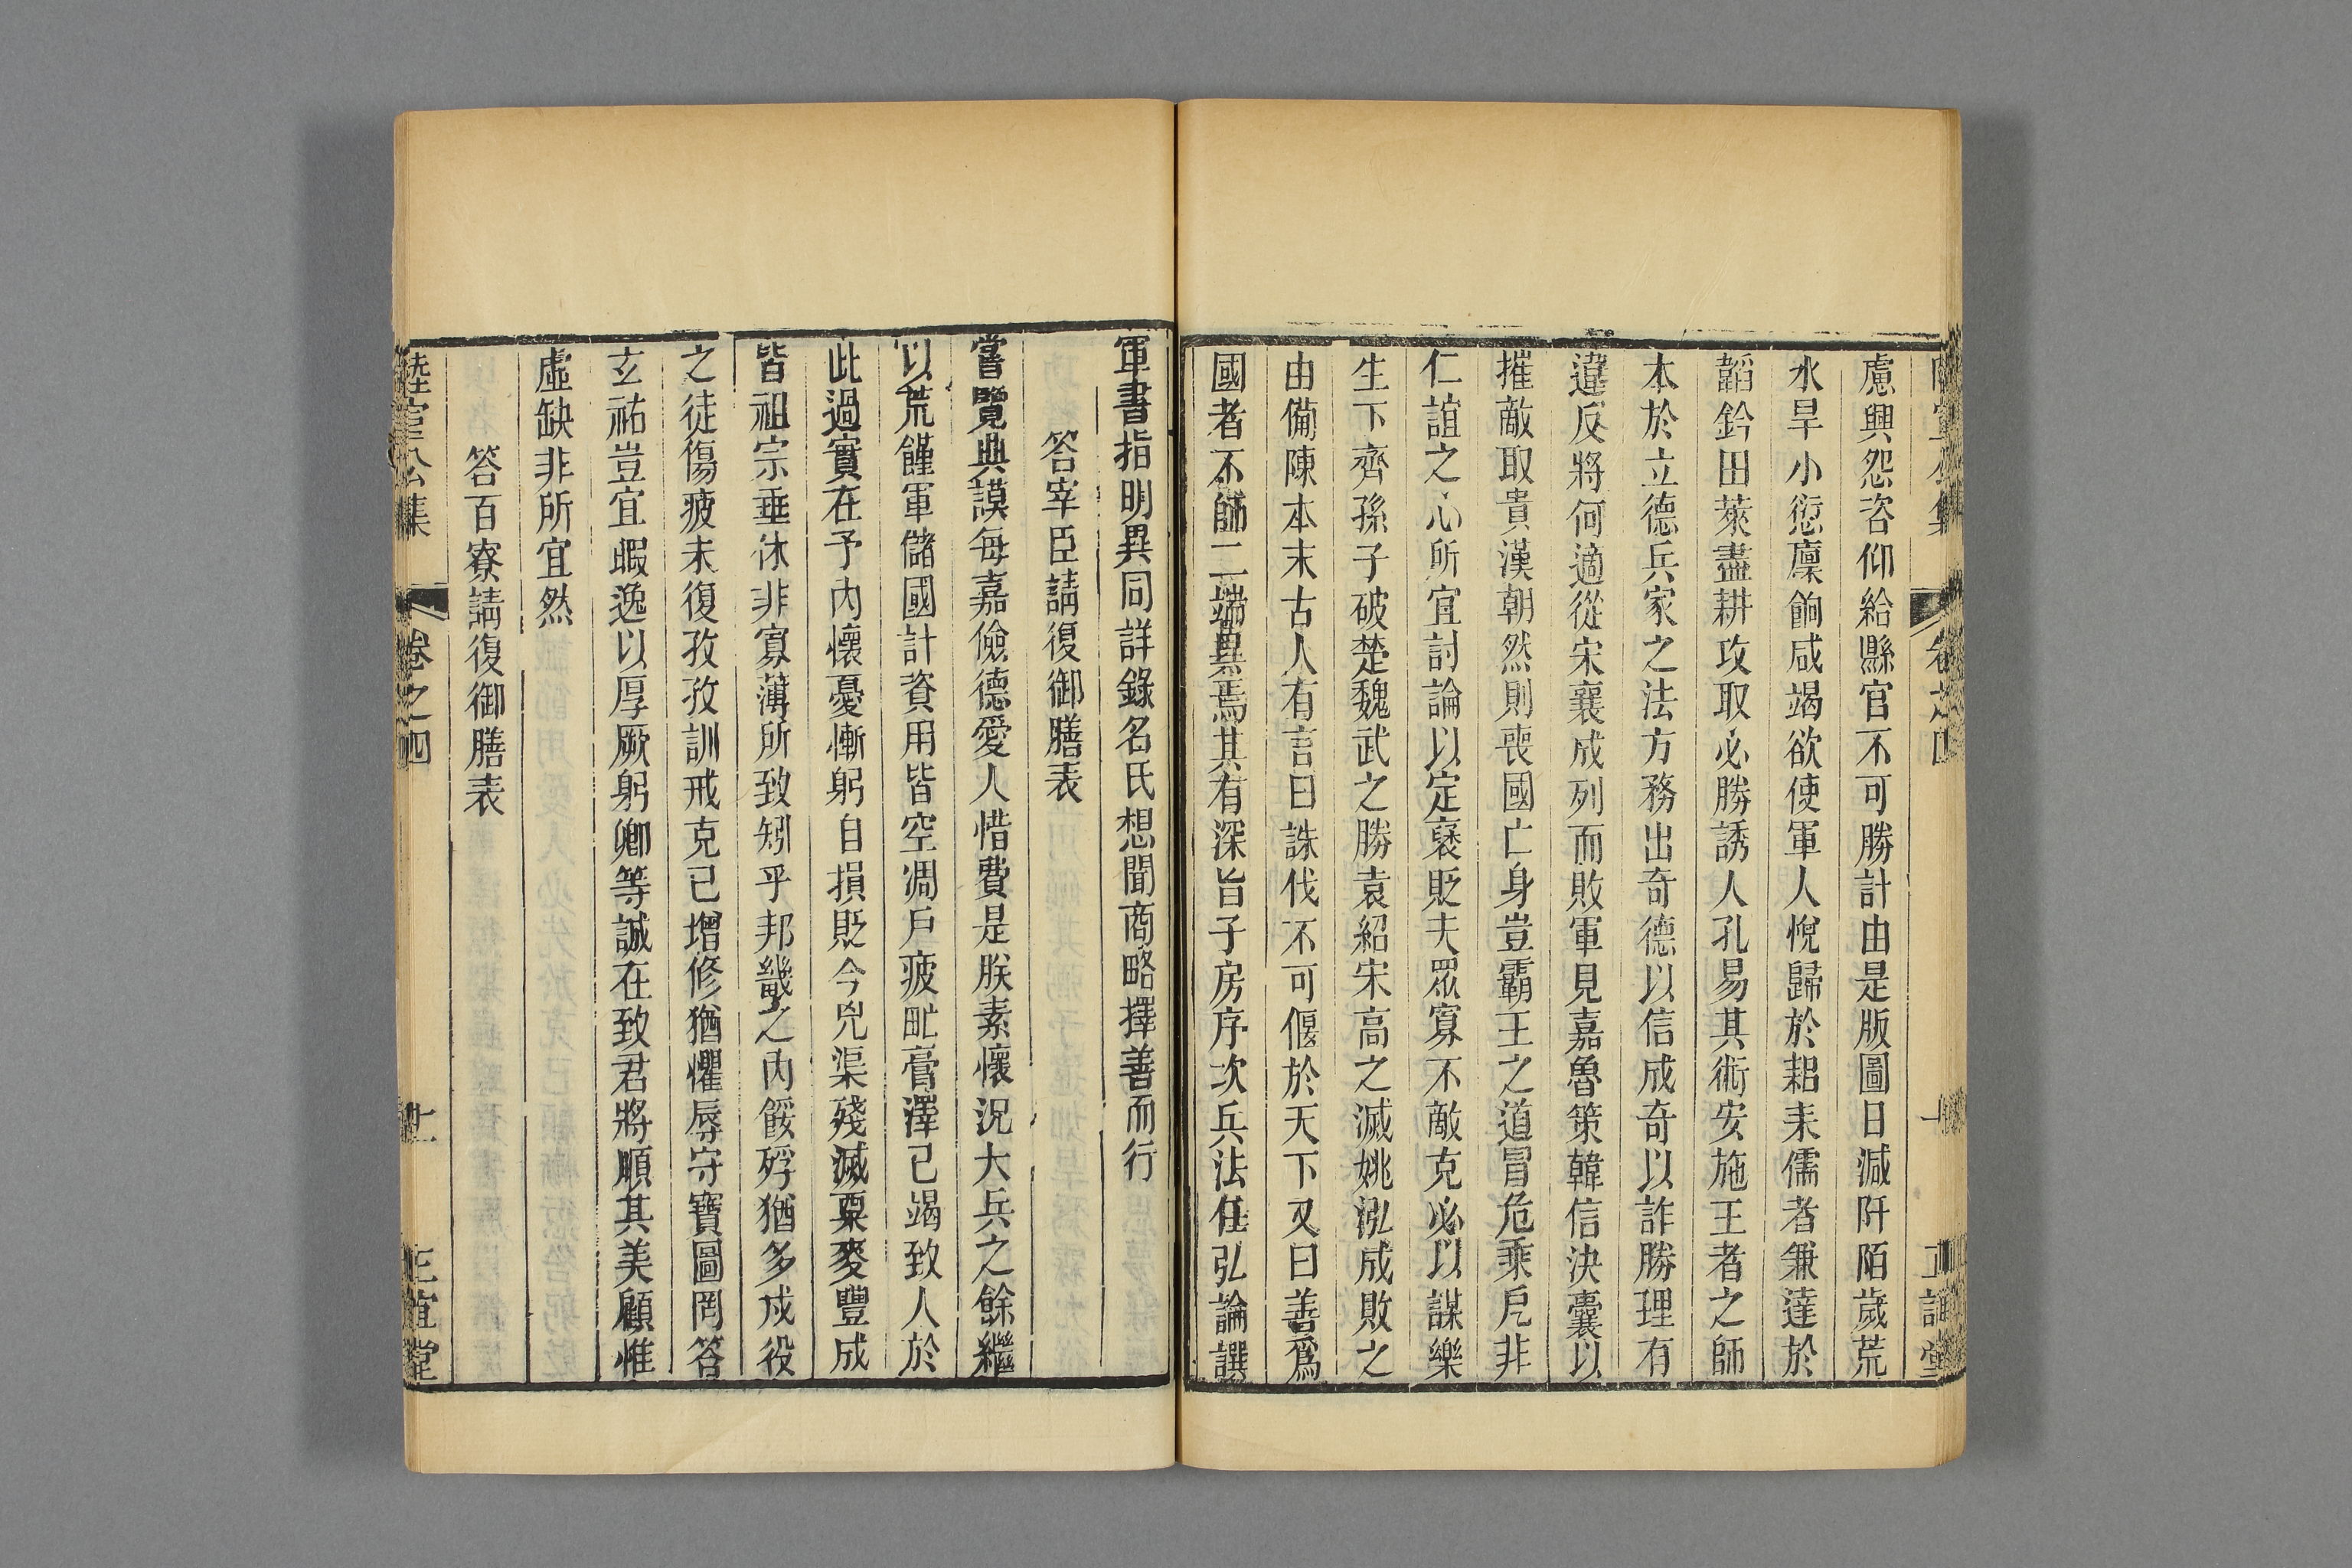 慮興怨咨仰給縣官不可勝計由是版圖日減阡陌歲荒
水旱小愆廩餉咸竭欲使軍人悅歸於耜耒儒者兼達於
韜鈐田萊盡耕攻取必勝誘人孔易其術安施王者之師
本於立德兵家之法方務出奇德以信成奇以詐勝理有
違反將何適從宋襄成列而敗軍見嘉魯策韓信決囊以
摧敵取貴漢朝然則喪國亡身豈霸王之道冒危乘戹非
仁誼之心所宜討論以定襃貶夫眾寡不敵克必以謀樂
生下齊孫子破楚魏武之勝袁紹宋高之滅姚泓成敗之
由備陳本末古人有言曰誅伐不可偃於天下又曰善爲
國者不師二端異焉其有深旨子房序次兵法任弘論譔
軍書指明異同詳錄名氏想聞商略擇善而行
答宰臣請復御膳表
嘗覽典謨每嘉儉德愛人惜費是朕素懷況大兵之餘繼
以荒饉軍儲國計資用皆空凋戶疲甿膏澤已竭致人於
此過實在予內懷憂慚躬自損貶今兇渠殘滅粟麥豐成
皆祖宗垂休非寡薄所致矧乎邦畿之內餒殍猶多戍役
之徒傷疲未復孜孜訓戒克已增修猶懼辱守寶圖罔答
玄祐豈宜暇逸以厚厥躬卿等誠在致君將順其美顧惟
虛缺非所宜然
答百寮請復御膳表
陸宣公集
卷之四
十一
正誼堂